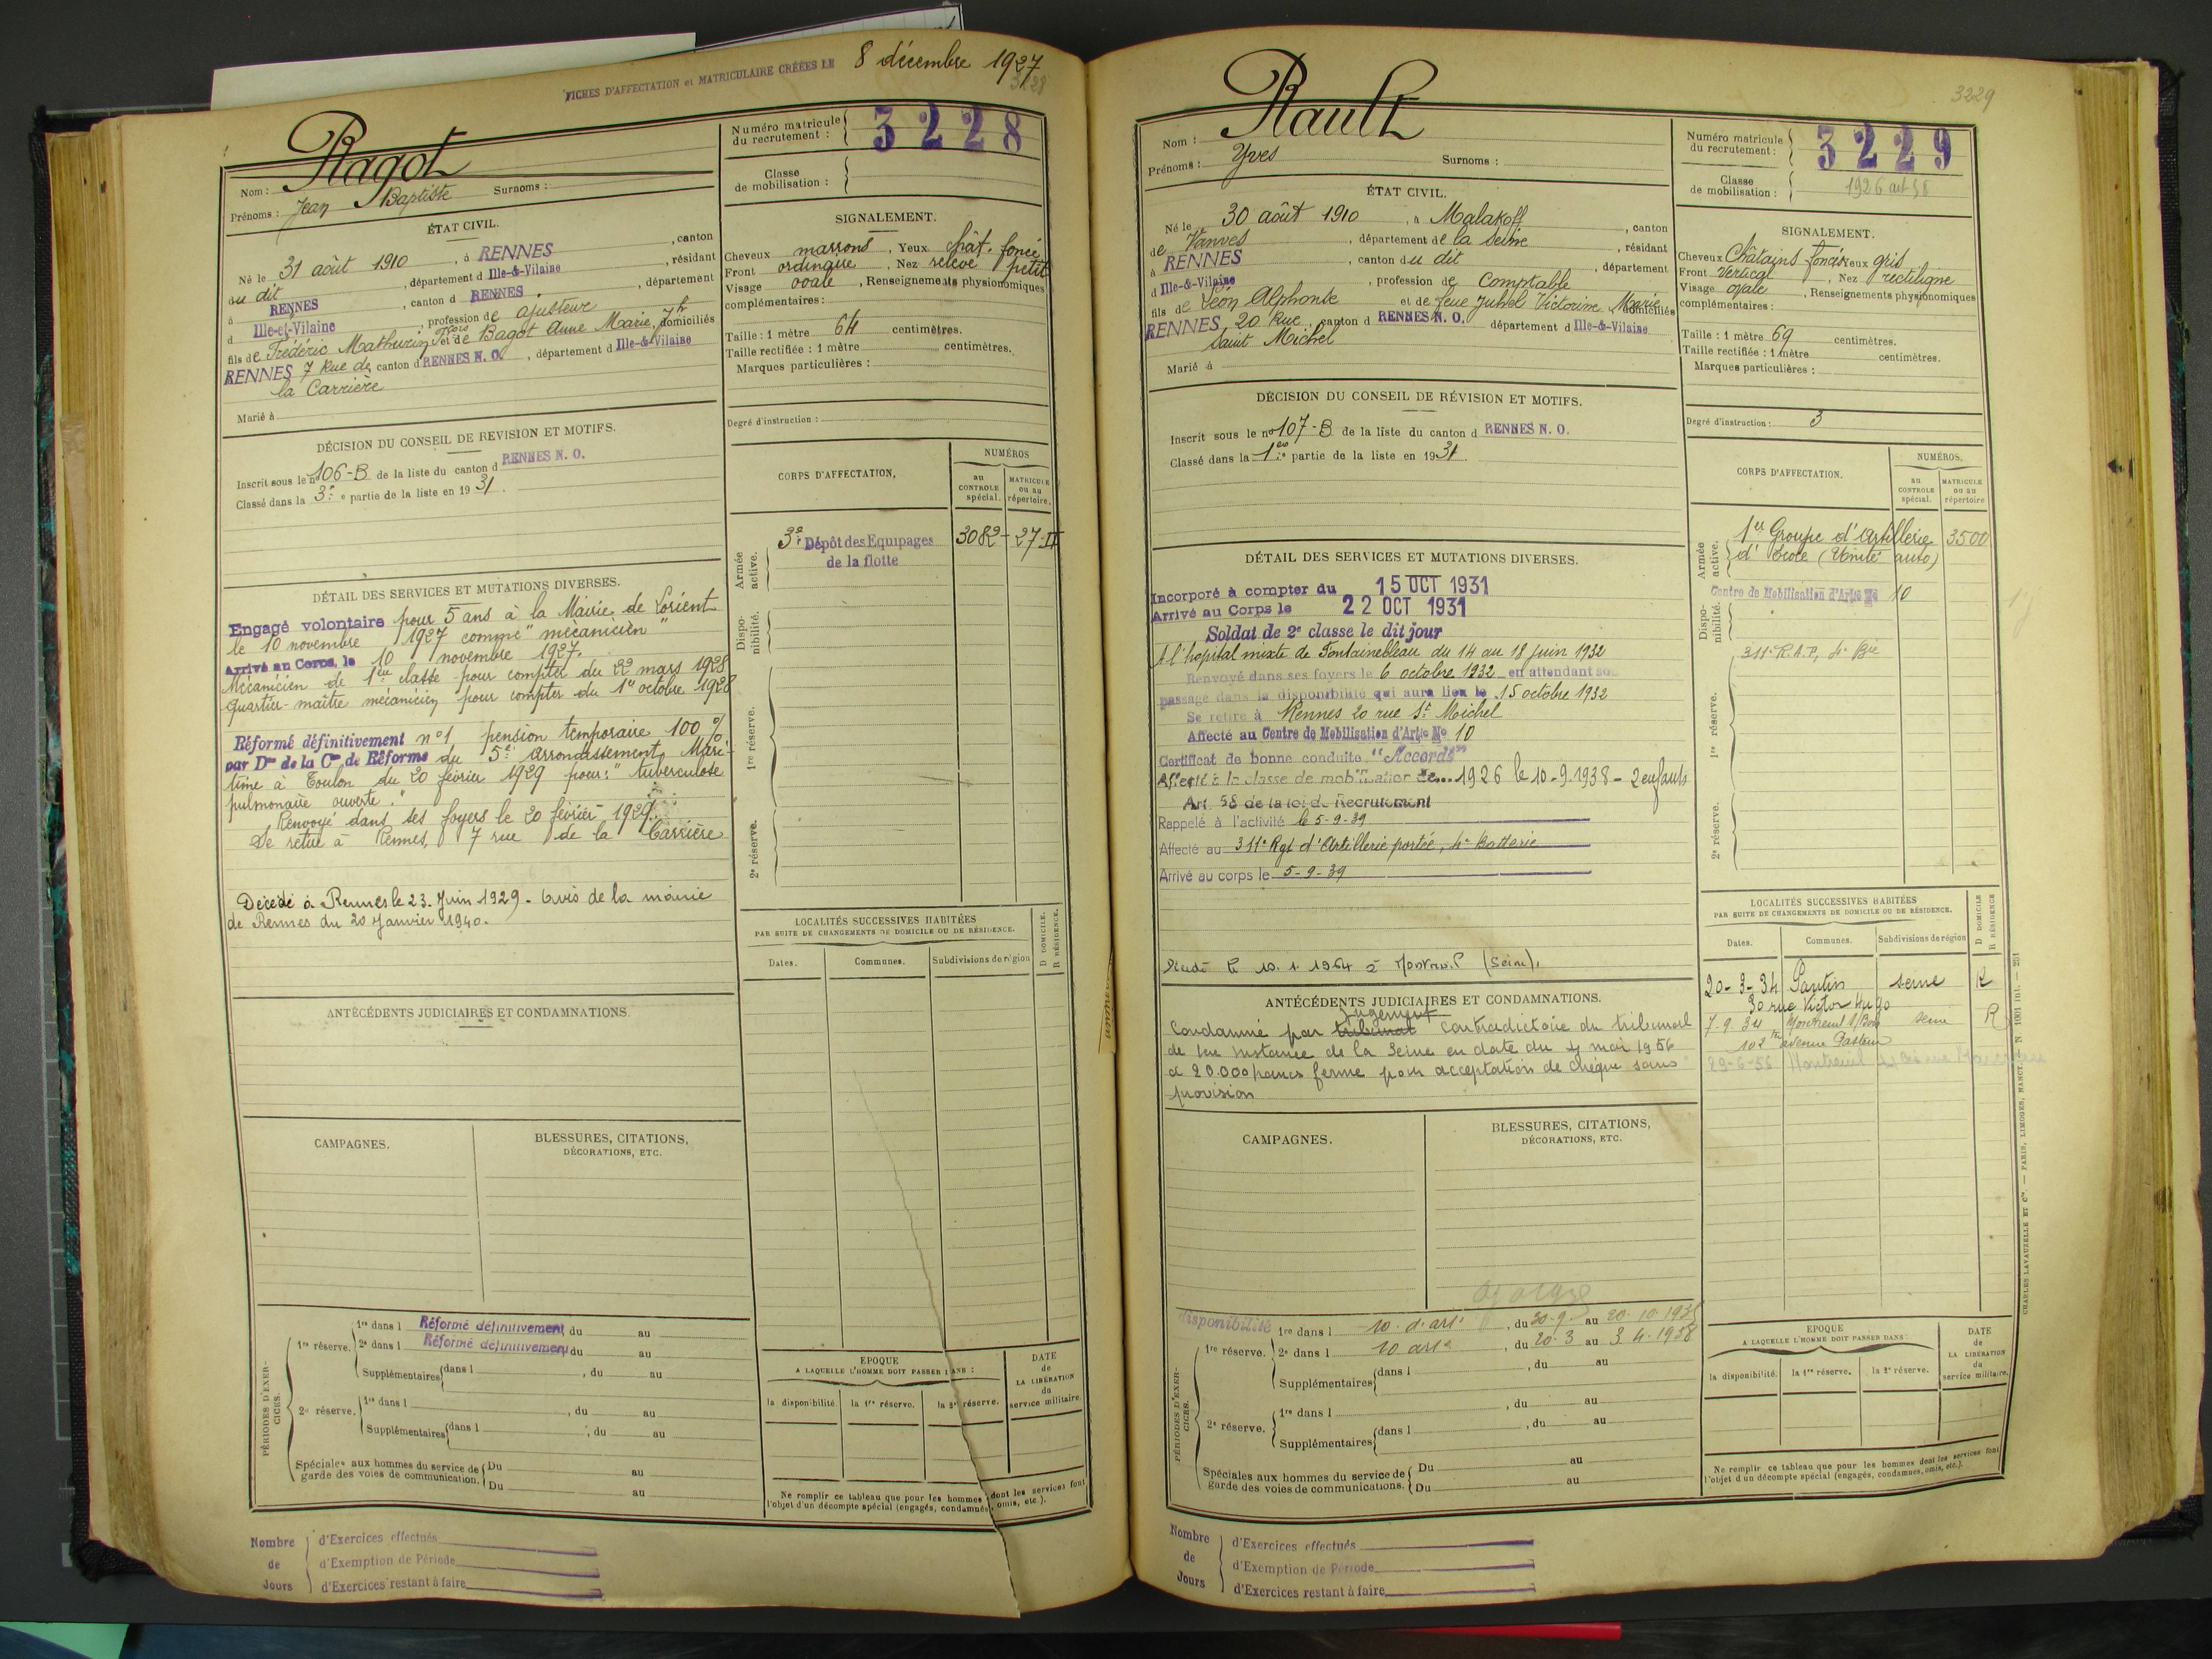 FICHES D'AFFECTATION et MATRICULAIRE CRÉÉES LE 8 décembre 1927
3228
Nom : Ragot
Prénoms : Jean Baptiste Surnoms :
Numéro matricule du recrutement : 3228
Classe de mobilisation :
ÉTAT CIVIL.
Né le 31 août 1910, à RENNES, canton
du dit, département d Ille-&-Vilaine, résidant
à RENNES, canton d RENNES, département
d Ille-et-Vilaine, profession de ajusteur
fils de Frédéric Mathurin Frois et de Bagot Anne Marie, domiciliés
RENNES 7 Rue de canton d RENNES N. O., département d Ille-&-Vilaine
la Carrière
Marié à
SIGNALEMENT.
Cheveux marrons, Yeux chât. foncé
Front ordinaire, Nez relevé petit
Visage ovale, Renseignements physionomiques
complémentaires :
Taille : 1 mètre 64 centimètres.
Taille rectifiée : 1 mètre centimètres.
Marques particulières :
Degré d'instruction :
DÉCISION DU CONSEIL DE REVISION ET MOTIFS.
Inscrit sous le n° 106-B de la liste du canton d RENNES N. O.
Classé dans la 3e partie de la liste en 1931.
CORPS D'AFFECTATION,
NUMÉROS
au CONTROLE spécial.
MATRICULE ou au répertoire.
Armée active.
3e Dépôt des Equipages 3082 - 27-II
de la flotte
Disponibilité.
1re réserve.
2e réserve.
DÉTAIL DES SERVICES ET MUTATIONS DIVERSES.
Engagé volontaire pour 5 ans à la Mairie de Lorient
le 10 novembre 1927 comme "mécanicien"
Arrivé au Corps, le 10 novembre 1927.
Mécanicien de 1ère classe pour compter du 22 mars 1928
Quartier-maître mécanicien pour compter du 1er octobre 1928
Réformé définitivement n°1 pension temporaire 100 %
par Don de la Con de Réforme du 5e arrondissement Mari-
time à Toulon du 20 février 1929 pour : "tuberculose
pulmonaire ouverte."
Renvoyé dans ses foyers le 20 février 1929.
Se retire à Rennes, 7 rue de la Carrière
Décédé à Rennes le 23 Juin 1929 - Avis de la mairie
de Rennes du 20 Janvier 1940.
LOCALITÉS SUCCESSIVES HABITÉES
PAR SUITE DE CHANGEMENTS DE DOMICILE OU DE RÉSIDENCE.
D DOMICILE. R RÉSIDENCE.
Dates. Communes. Subdivisions de région
ANTÉCÉDENTS JUDICIAIRES ET CONDAMNATIONS.
CAMPAGNES.
BLESSURES, CITATIONS,
DÉCORATIONS, ETC.
PÉRIODES D'EXERCICES.
1re réserve. 1re dans l Réformé définitivement, du au
2e dans l Réformé définitivement du au
Supplémentaires dans l, du au
2e réserve. 1re dans l, du au
Supplémentaires dans l, du au
Spéciales aux hommes du service de garde des voies de communication. Du au
Du au
EPOQUE
A LAQUELLE L'HOMME DOIT PASSER DANS :
la disponibilité. la 1re réserve. la 2e réserve.
DATE de LA LIBÉRATION du service militaire.
Ne remplir ce tableau que pour les hommes dont les services font
l'objet d'un décompte spécial (engagés, condamnés, omis, etc.).
Nombre de Jours
d'Exercices effectués
d'Exemption de Période
d'Exercices restant à faire
3229
Nom : Rault
Prénoms : Yves Surnoms :
Numéro matricule du recrutement : 3229
Classe de mobilisation : 1926 art 58
ÉTAT CIVIL.
Né le 30 août 1910, à Malakoff, canton
de Vanves, département de la Seine, résidant
à RENNES, canton du dit, département
d Ille-&-Vilaine, profession de Comptable
fils de Léon Alphonse et de feue Juhel Victorine Marie, domiciliés
RENNES, 20 Rue canton d RENNES N. O. département d Ille-&-Vilaine
Saint Michel
Marié à
SIGNALEMENT.
Cheveux Châtains foncés Yeux gris
Front Vertical, Nez rectiligne
Visage ovale, Renseignements physionomiques
complémentaires :
Taille : 1 mètre 69 centimètres.
Taille rectifiée : 1 mètre centimètres.
Marques particulières :
Degré d'instruction : 3
DÉCISION DU CONSEIL DE RÉVISION ET MOTIFS.
Inscrit sous le n° 107-B de la liste du canton d RENNES N. O.
Classé dans la 1re partie de la liste en 1931.
CORPS D'AFFECTATION.
NUMÉROS.
au CONTROLE spécial.
MATRICULE ou au répertoire
Armée active.
1er Groupe d'Artillerie 3500
d'Ecole (Unité auto)
Disponibilité.
Centre de Mobilisation d'Artie No 10
1re réserve.
311e R.A.P, 4e Bie
2e réserve.
DÉTAIL DES SERVICES ET MUTATIONS DIVERSES.
Incorporé à compter du 15 OCT 1931
Arrivé au Corps le 22 OCT 1931
Soldat de 2e classe le dit jour
A l'hopital mixte de Fontainebleau du 14 au 18 juin 1932
Renvoyé dans ses foyers le 6 octobre 1932 en attendant son
passage dans la disponibilité qui aura lieu le 15 octobre 1932
Se retire à Rennes 20 rue St Michel
Affecté au Centre de Mobilisation d'Artie No 10
Certificat de bonne conduite "Accordé"
Affecté à la classe de mobilisation de 1926 le 10-9-1938 - 2 enfants
Art 58 de la loi de Recrutement
Rappelé à l'activité le 5-9-39
Affecté au 311e Rgt d'Artillerie portée, 4e Batterie
Arrivé au corps le 5-9-39
Décédé le 10.1.1964 à (Seine).
LOCALITÉS SUCCESSIVES HABITÉES
PAR SUITE DE CHANGEMENTS DE DOMICILE OU DE RÉSIDENCE.
D DOMICILE R RÉSIDENCE
Dates. Communes. Subdivisions de région
20-3-34 Pantin Seine R
30 rue Victor Hugo
7-9-34 Montreuil s/Bois Seine R
102 avenue Pasteur
29-6-56 Montreuil
ANTÉCÉDENTS JUDICIAIRES ET CONDAMNATIONS.
jugement
Condamné par tribunal contradictoire du tribunal
de 1ère Instance de la Seine en date du 4 mai 1956
a 20.000 francs ferme pour acceptation de chèque sans
provision
CAMPAGNES.
BLESSURES, CITATIONS,
DÉCORATIONS, ETC.
PÉRIODES D'EXERCICES.
disponibilité 1re dans l 10. d'artie, du 20-9- au 20-10-1935
1re réserve. 2e dans l 10 artie, du 20-3 au 3-4-1938
Supplémentaires dans l, du au
2e réserve. 1re dans l, du au
Supplémentaires dans l, du au
Spéciales aux hommes du service de garde des voies de communications. Du au
Du au
EPOQUE
A LAQUELLE L'HOMME DOIT PASSER DANS :
la disponibilité. la 1re réserve. la 2e réserve.
DATE de LA LIBÉRATION du service militaire.
Ne remplir ce tableau que pour les hommes dont les services font
l'objet d'un décompte spécial (engagés, condamnés, omis, etc.).
CHARLES LAVAUZELLE ET Cie. — PARIS, LIMOGES, NANCY. — N 1001 int. — 251
Nombre de Jours
d'Exercices effectués
d'Exemption de Période
d'Exercices restant à faire